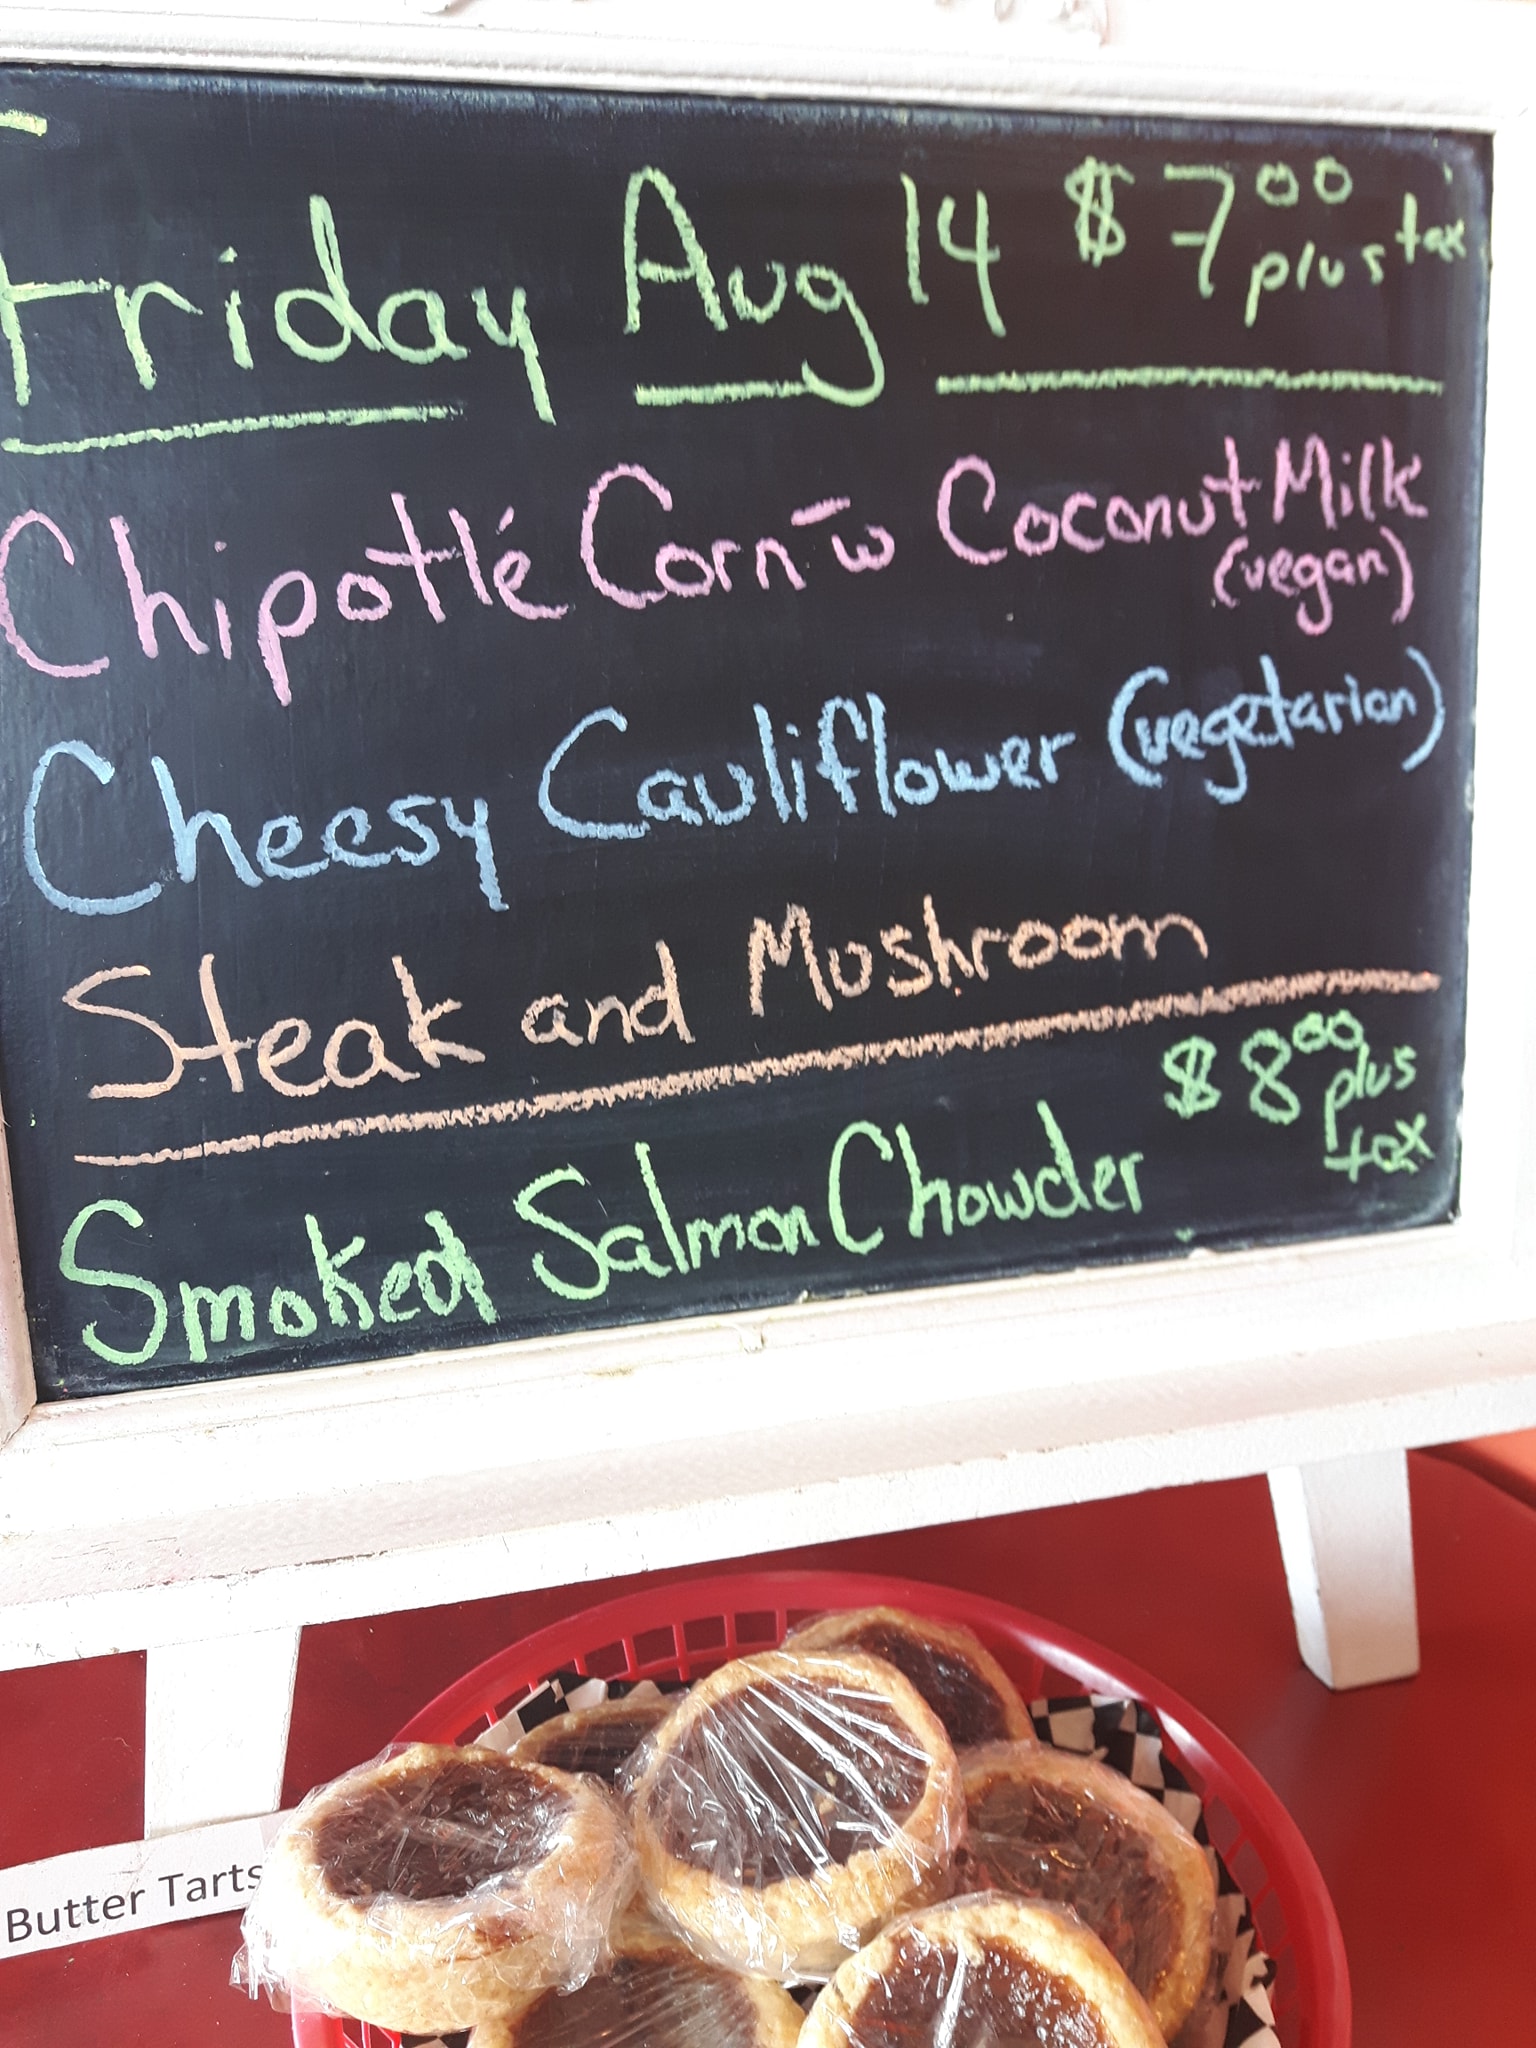 Friday Aug 14 $7.00 plus tax
Chipotlé Corn - w Coconut Milk
(vegan)
Cheesy Cauliflower (vegetarian)
Steak and Mushroom
$8.00 plus tax
Smoked Salmon Chowder
Butter Tarts